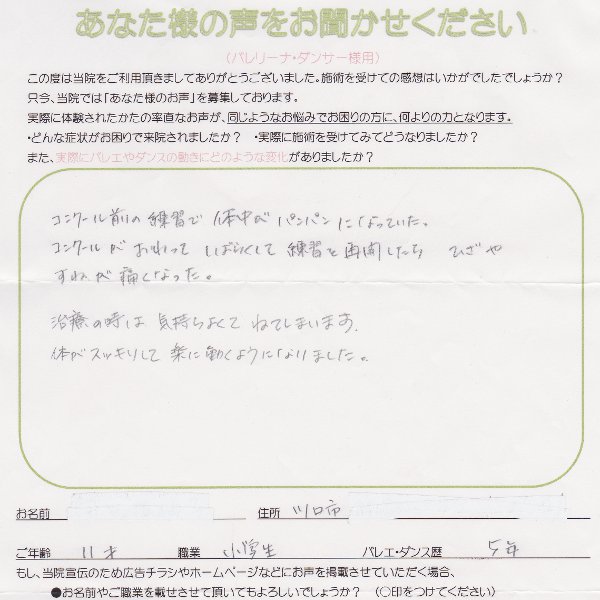 あなた様の声をお聞かせください
(バレリーナ・ダンサー様用)
この度は当院をご利用頂きましてありがとうございました。施術を受けての感想はいかがでしたでしょうか?
只今、当院では「あなた様のお声」を募集しております。
実際に体験されたかたの率直なお声が、同じようなお悩みでお困りの方に、何よりの力となります。
・どんな症状がお困りで来院されましたか? ・実際に施術を受けてみてどうなりましたか?
また、実際にバレエやダンスの動きにどのような変化がありましたか?
コンクール前の練習で体中がパンパンになっていた。
コンクールがおわってしばらくして練習を再開したら ひざや
すねが痛くなった。
治療の時は気持ちよくてねてしまいます。
体がスッキリして楽に動くようになりました。
お名前 住所 川口市
ご年齢 11才 職業 小学生 バレエ・ダンス歴 5年
もし、当院宣伝のため広告チラシやホームページなどにお声を掲載させていただく場合、
●お名前やご職業を載せさせて頂いてもよろしいでしょうか? (○印をつけてください)